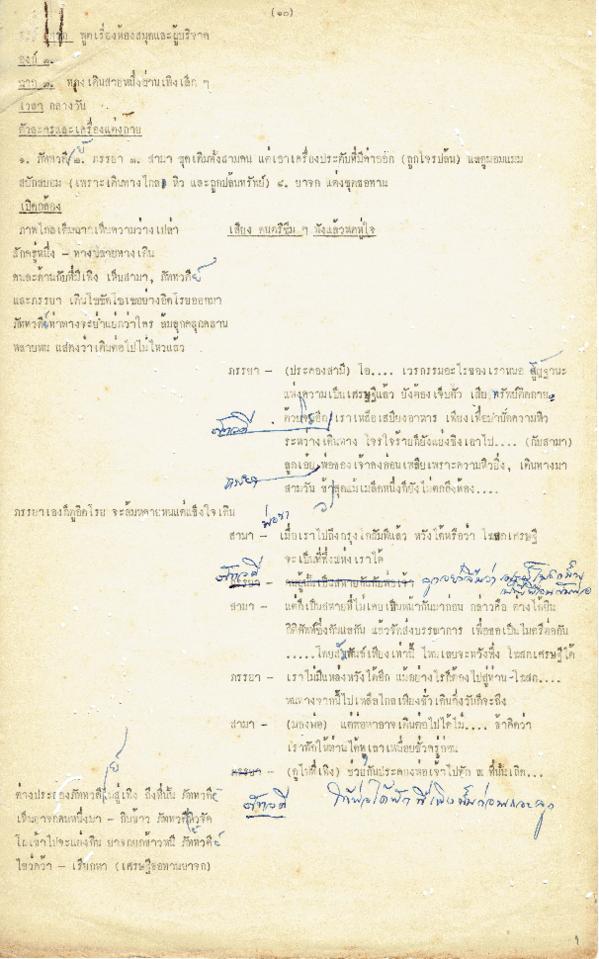 (๑๐)
พูดเรื่องห้องสมุดและผู้บริจาค
องก์ ๑.
ฉาก ๑. ทางเดินสายหนึ่งผ่านเพิงเล็ก ๆ
เวลา กลางวัน
ตัวละครและเครื่องแต่งกาย
๑. ภัททวดีย์ ๒. ภรรยา ๓. สามา ชุดเดิมทั้งสามคน แต่เอาเครื่องประดับที่มีค่าออก (ถูกโจรปล้น) แลดูมอมแมม
สะบักสะบอม (เพราะเดินทางไกล หิว และถูกปล้นทรัพย์) ๔. ยาจก แต่งชุดขอทาน
เปิดกล้อง
ภาพไกลเต็มฉากเห็นความว่างเปล่า
เสียง ดนตรีซึม ๆ ฟังแล้วหดหู่ใจ
สักครู่หนึ่ง - ทางปลายทางเดิน
คนละด้านกับที่มีเพิง เห็นสามา, ภัททวดีย์
และภรรยา เดินโซซัดโซเซอย่างอิดโรยออกมา
ภัททวดีย์ท่าทางจะย่ำแย่กว่าใคร ล้มลุกคลุกคลาน
หลายหน แสดงว่าเดินต่อไปไม่ไหวแล้ว
ภรรยา - (ประคองสามี) โอ.... เวรกรรมอะไรของเราหนอ สู้ฐานะ
แห่งความเป็นเศรษฐีแล้ว ยังต้องเจ็บตัว เสียทรัพย์ติดกาย
ด้วยโจรอีก เราเหลือเสบียงอาหาร เพียงเพื่อบำบัดความหิว
ภัททวดี
ระหว่างเดินทาง โจรใจร้ายก็ยังแย่งชิงเอาไป.... (กับสามา)
ภรรยา
ลูกเอ๋ย พ่อของเจ้าคงอ่อนเพลียเพราะความหิวยิ่ง, เดินทางมา
สามวัน ข้าวสุกแม้เมล็ดหนึ่งก็ยังไม่ตกถึงท้อง....
ภรรยาเองก็ดูอิดโรย จะล้มหลายหนแต่แข็งใจเดิน
พ่อขา
สามา - เมื่อเราไปถึงกรุงโกสัมพีแล้ว หวังได้หรือว่า โฆสกเศรษฐี
จะเป็นที่พึ่งแห่งเราได้
ภัททวดี
สามา - แต่ก็เป็นสหายที่ไม่เคยเป็นหน้ากันมาก่อน กล่าวคือ ต่างได้ยิน
กิติศัพท์ซึ่งกันและกัน แล้วจัดส่งบรรณาการ เพื่อขอเป็นไมตรีต่อกัน
.....โดยสัมพันธ์เพียงเท่านี้ ไหนเลยจะหวังพึ่ง โฆสกเศรษฐีได้
ภรรยา - เราไม่มีแหล่งหวังได้อีก แม้อย่างไรก็ต้องไปสู่ท่าน โฆสก....
หนทางจากนี้ไปเหลือไกลเพียงชั่วเดินกึ่งวันก็จะถึง
สามา - (มองพ่อ) แต่พ่อหาอาจเดินต่อไปได้ไม่.... ข้าคิดว่า
เราพักให้ท่านได้ทุเลาเหนื่อยชั่วครู่ก่อน
ภรรยา - (ดูไปที่เพิง) ช่วยกันประคองพ่อเจ้าไปพัก ณ ที่นั้นเถิด...
ภัททวดี ให้พ่อได้พักที่เพิงนั้นก่อนเถอะลูก
ต่างประคองภัททวดีย์ไปสู่เพิง ถึงที่นั้น ภัททวดีย์
เห็นยาจกคนหนึ่งมา - กินข้าว ภัททวดีหิวจัด
โผเข้าไปจะแย่งกิน ยาจกยกข้าวหนี ภัททวดีย์
ไขว่คว้า - เรียกหา (เศรษฐีขอทานยาจก)